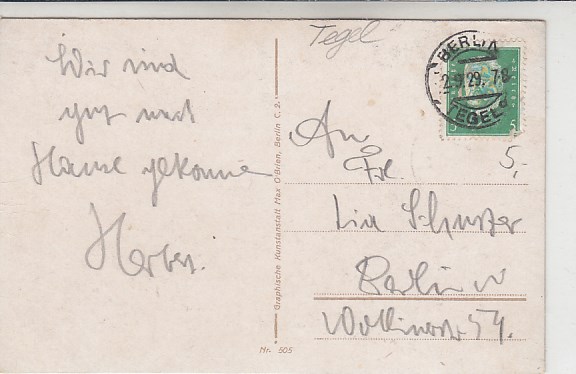 Wir sind
gut nach
Hause gekomme
Herbert.
Tegel
BERLIN
2.9.29. 7-8
TEGEL
5
5
5,-
An
Frl.
Lia Schuster
Berlin N
54.
Graphische Kunstanstalt Max O'Brien, Berlin C. 2.
Nr. 505